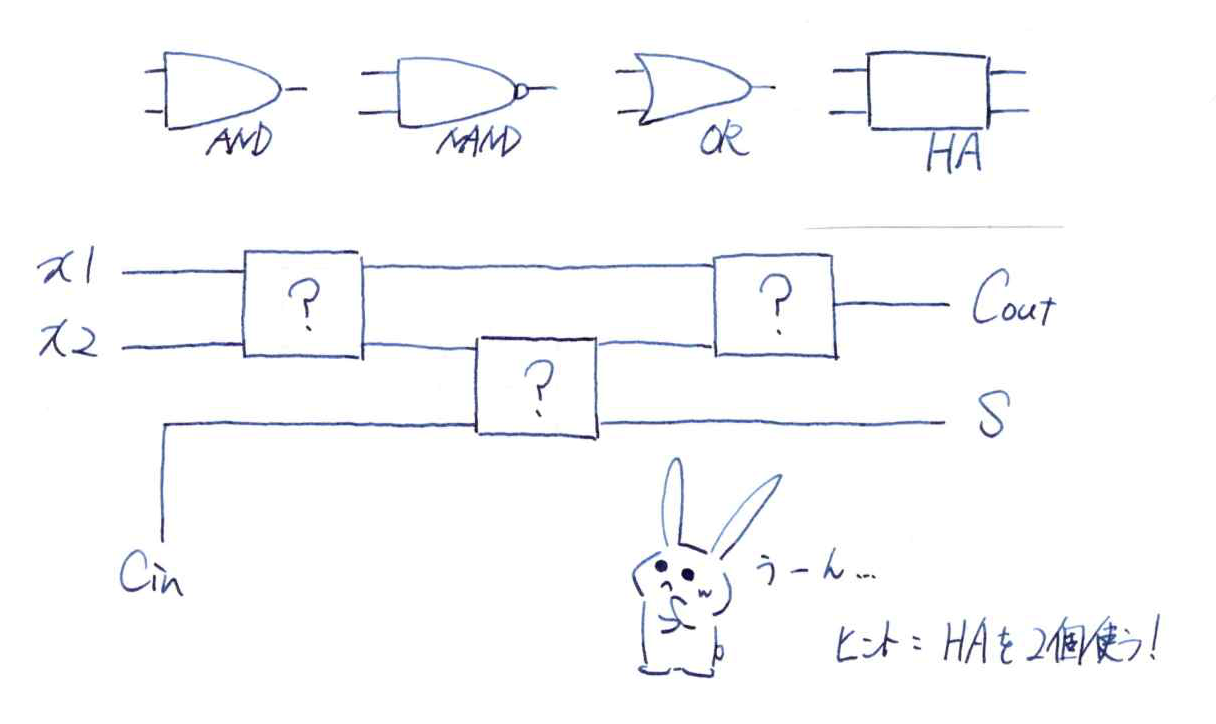 AND
NAND
OR
HA
x1
?
?
Cout
x2
?
S
Cin
うーん...
ヒント: HAを2個使う!